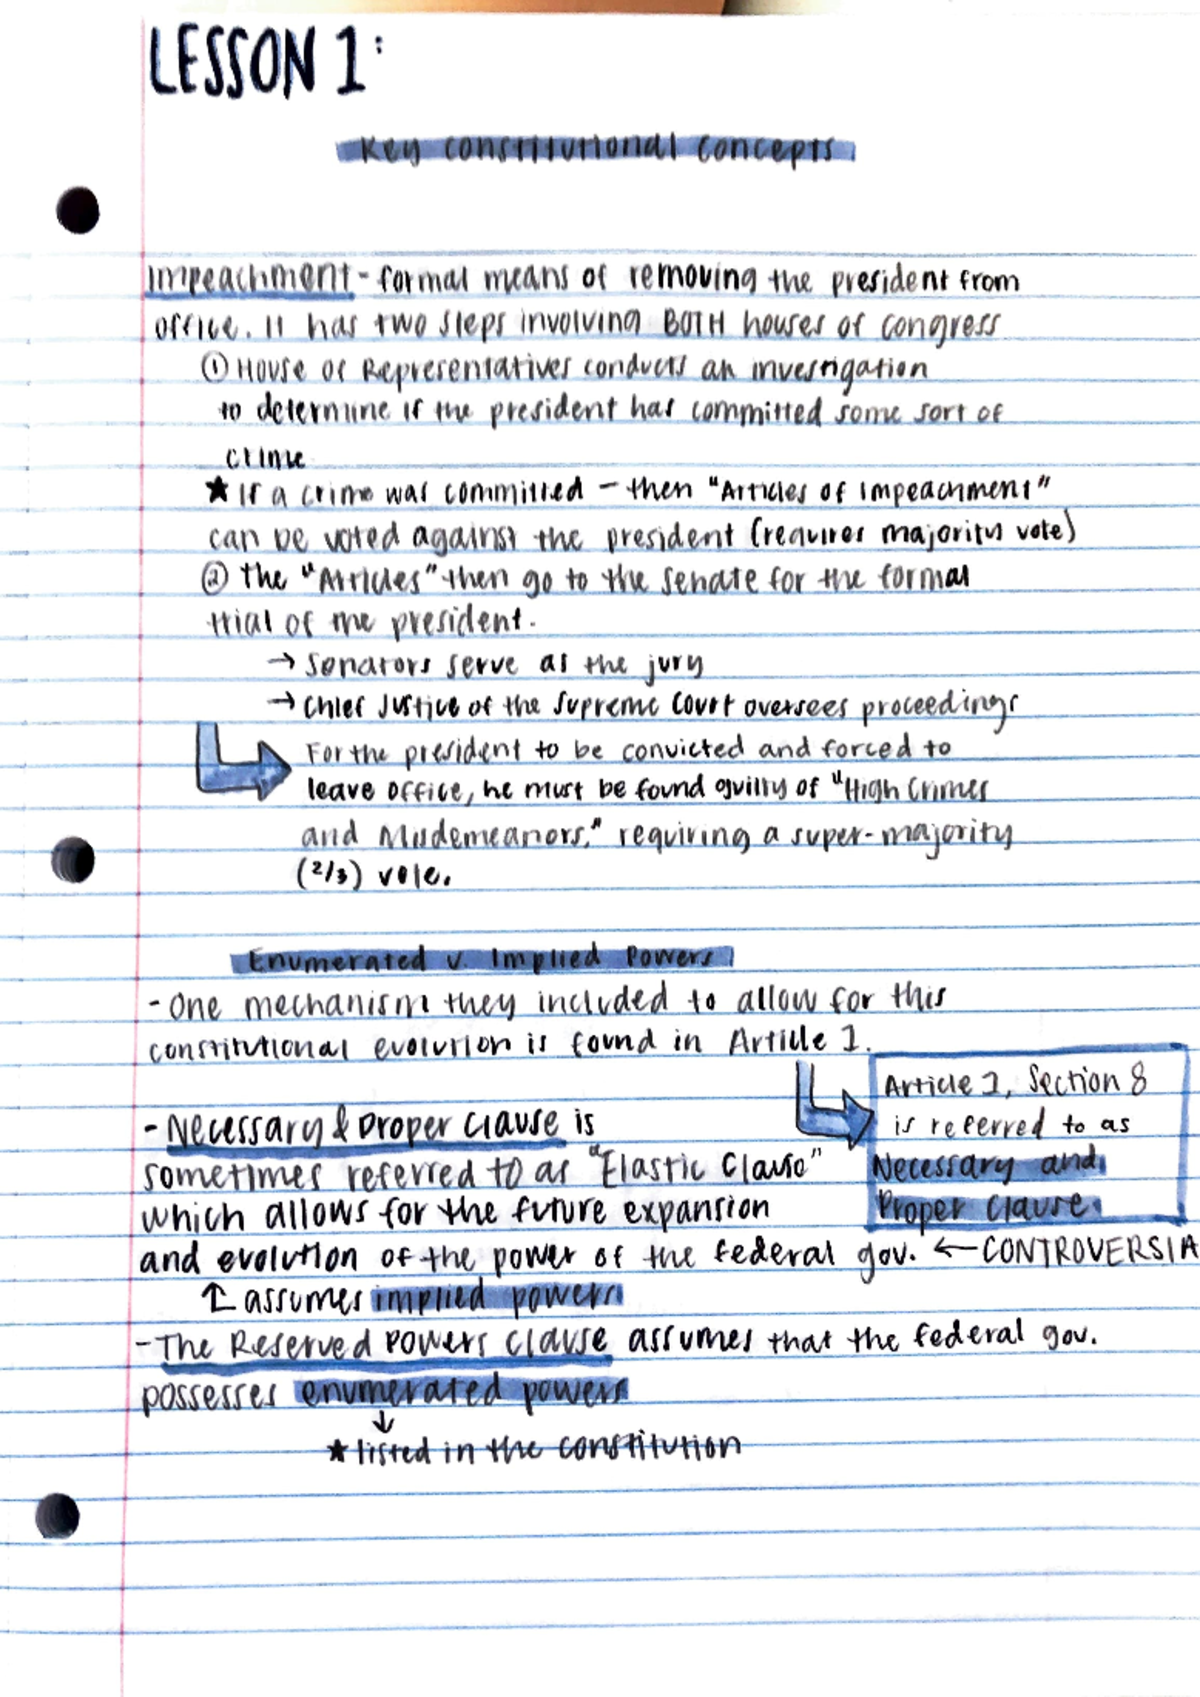 LESSON 1:
Key constitutional concepts
Impeachment - formal means of removing the president from
office. It has two steps involving BOTH houses of congress
① House of Representatives conducts an investigation
to determine if the president has committed some sort of
crime
★ If a crime was committed - then "Articles of Impeachment"
can be voted against the president (requires majority vote)
② The "Articles" then go to the Senate for the formal
trial of the president.
→ Senators serve as the jury
→ Chief Justice of the Supreme Court oversees proceedings
For the president to be convicted and forced to
leave office, he must be found guilty of "High Crimes
and Misdemeanors," requiring a super-majority
(2/3) vote.
Enumerated v. Implied Powers
- One mechanism they included to allow for this
constitutional evolution is found in Article 1.
Article 1, Section 8
is referred to as
Necessary and
Proper clause
- Necessary & Proper clause is
sometimes referred to as "Elastic Clause"
which allows for the future expansion
and evolution of the power of the federal gov. ← CONTROVERSIA
↑ assumes implied powers
- The Reserved Powers clause assumes that the federal gov.
possesses enumerated powers
↓
★ listed in the constitution